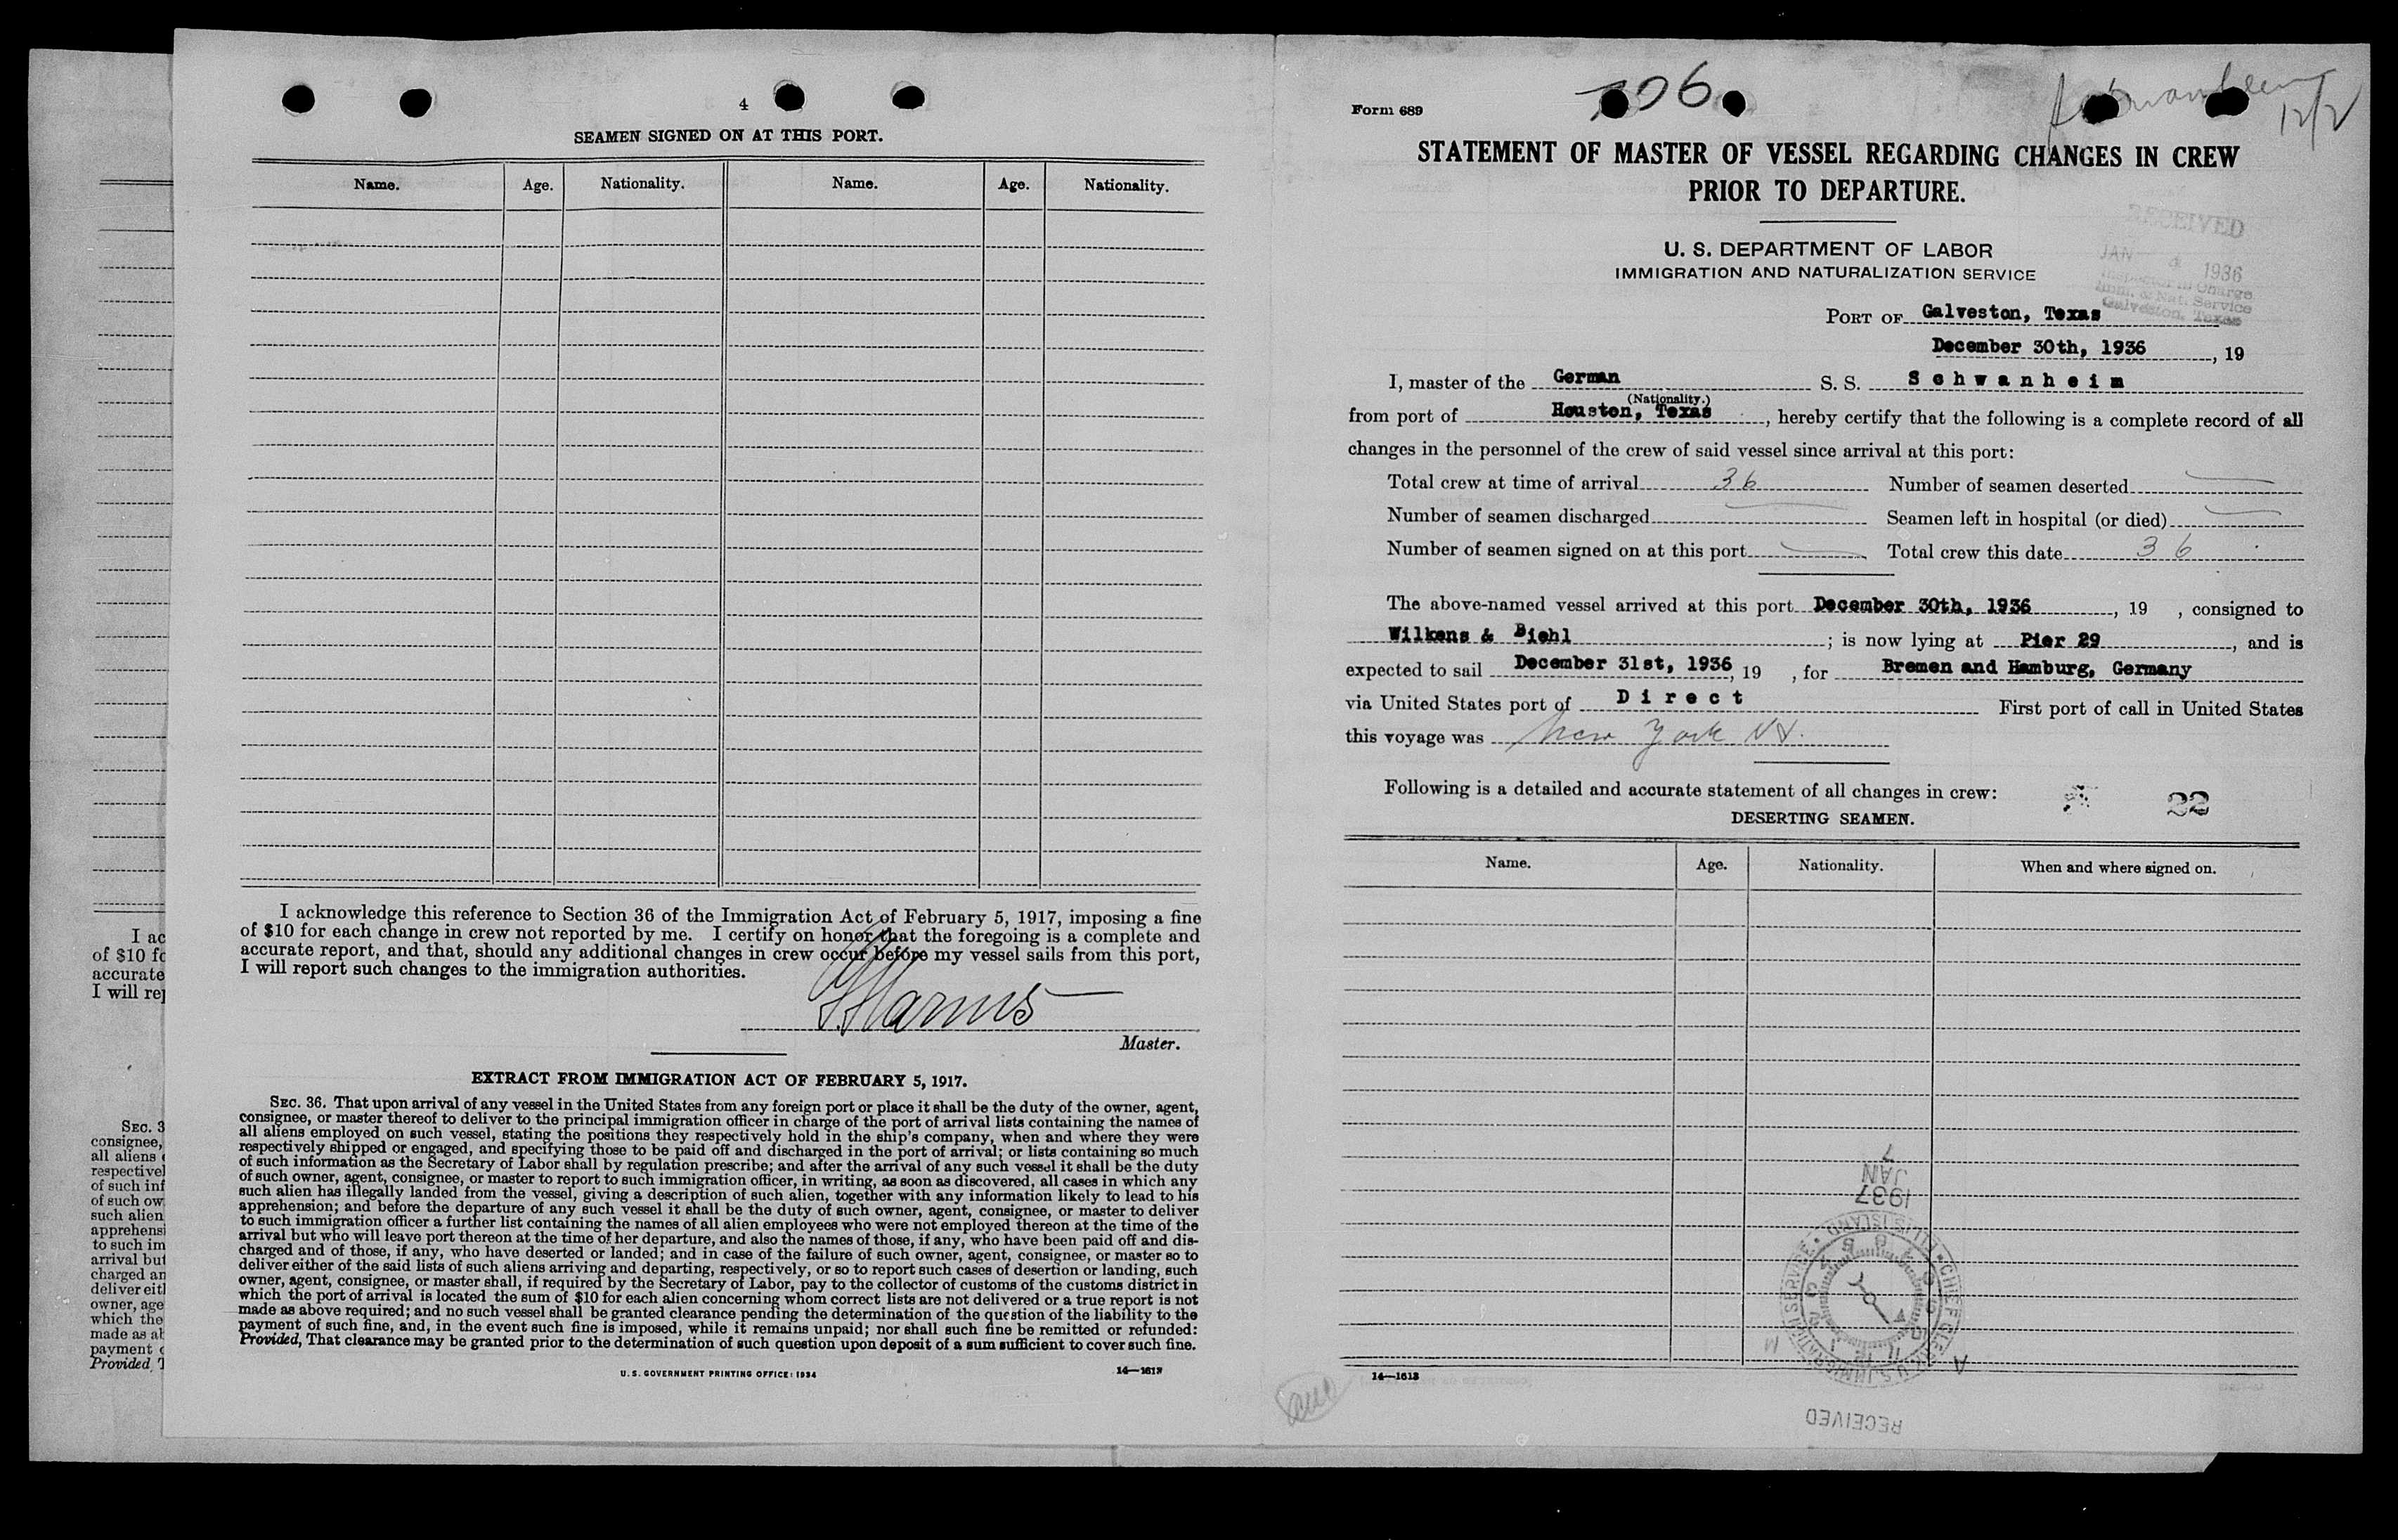 4
SEAMEN SIGNED ON AT THIS PORT.
Name. Age. Nationality. Name. Age. Nationality.
I acknowledge this reference to Section 36 of the Immigration Act of February 5, 1917, imposing a fine
of $10 for each change in crew not reported by me. I certify on honor that the foregoing is a complete and
accurate report, and that, should any additional changes in crew occur before my vessel sails from this port,
I will report such changes to the immigration authorities.
Master.
EXTRACT FROM IMMIGRATION ACT OF FEBRUARY 5, 1917.
SEC. 36. That upon arrival of any vessel in the United States from any foreign port or place it shall be the duty of the owner, agent,
consignee, or master thereof to deliver to the principal immigration officer in charge of the port of arrival lists containing the names of
all aliens employed on such vessel, stating the positions they respectively hold in the ship's company, when and where they were
respectively shipped or engaged, and specifying those to be paid off and discharged in the port of arrival; or lists containing so much
of such information as the Secretary of Labor shall by regulation prescribe; and after the arrival of any such vessel it shall be the duty
of such owner, agent, consignee, or master to report to such immigration officer, in writing, as soon as discovered, all cases in which any
such alien has illegally landed from the vessel, giving a description of such alien, together with any information likely to lead to his
apprehension; and before the departure of any such vessel it shall be the duty of such owner, agent, consignee, or master to deliver
to such immigration officer a further list containing the names of all alien employees who were not employed thereon at the time of the
arrival but who will leave port thereon at the time of her departure, and also the names of those, if any, who have been paid off and dis-
charged and of those, if any, who have deserted or landed; and in case of the failure of such owner, agent, consignee, or master so to
deliver either of the said lists of such aliens arriving and departing, respectively, or so to report such cases of desertion or landing, such
owner, agent, consignee, or master shall, if required by the Secretary of Labor, pay to the collector of customs of the customs district in
which the port of arrival is located the sum of $10 for each alien concerning whom correct lists are not delivered or a true report is not
made as above required; and no such vessel shall be granted clearance pending the determination of the question of the liability to the
payment of such fine, and, in the event such fine is imposed, while it remains unpaid; nor shall such fine be remitted or refunded:
Provided, That clearance may be granted prior to the determination of such question upon deposit of a sum sufficient to cover such fine.
U. S. GOVERNMENT PRINTING OFFICE: 1934
14—1613
I ac
of $10 fo
accurate
I will rep
SEC. 3
consignee,
all aliens
respectivel
of such inf
of such ow
such alien
apprehensi
to such im
arrival but
charged an
deliver eith
owner, age
which the
made as ab
payment
Provided, T
Form 689
12/2
STATEMENT OF MASTER OF VESSEL REGARDING CHANGES IN CREW
PRIOR TO DEPARTURE.
U. S. DEPARTMENT OF LABOR
IMMIGRATION AND NATURALIZATION SERVICE
RECEIVED
JAN 4 1936
Inspector in Charge
Imm. & Nat. Service
Galveston, Texas
PORT OF Galveston, Texas
December 30th, 1936, 19
I, master of the German S. S. Schwanheim
(Nationality.)
from port of Houston, Texas, hereby certify that the following is a complete record of all
changes in the personnel of the crew of said vessel since arrival at this port:
Total crew at time of arrival 36 Number of seamen deserted —
Number of seamen discharged — Seamen left in hospital (or died) —
Number of seamen signed on at this port — Total crew this date 36
The above-named vessel arrived at this port December 30th, 1936, 19 , consigned to
Wilkens & Biehl; is now lying at Pier 29, and is
expected to sail December 31st, 1936, 19 , for Bremen and Hamburg, Germany
via United States port of Direct First port of call in United States
this voyage was New York NY.
Following is a detailed and accurate statement of all changes in crew:
22
DESERTING SEAMEN.
Name. Age. Nationality. When and where signed on.
7
JAN
1937
ELLIS ISLAND • CHIEF CLERK U.S. IMMIGRATION SERVICE •
RECEIVED
14—1613